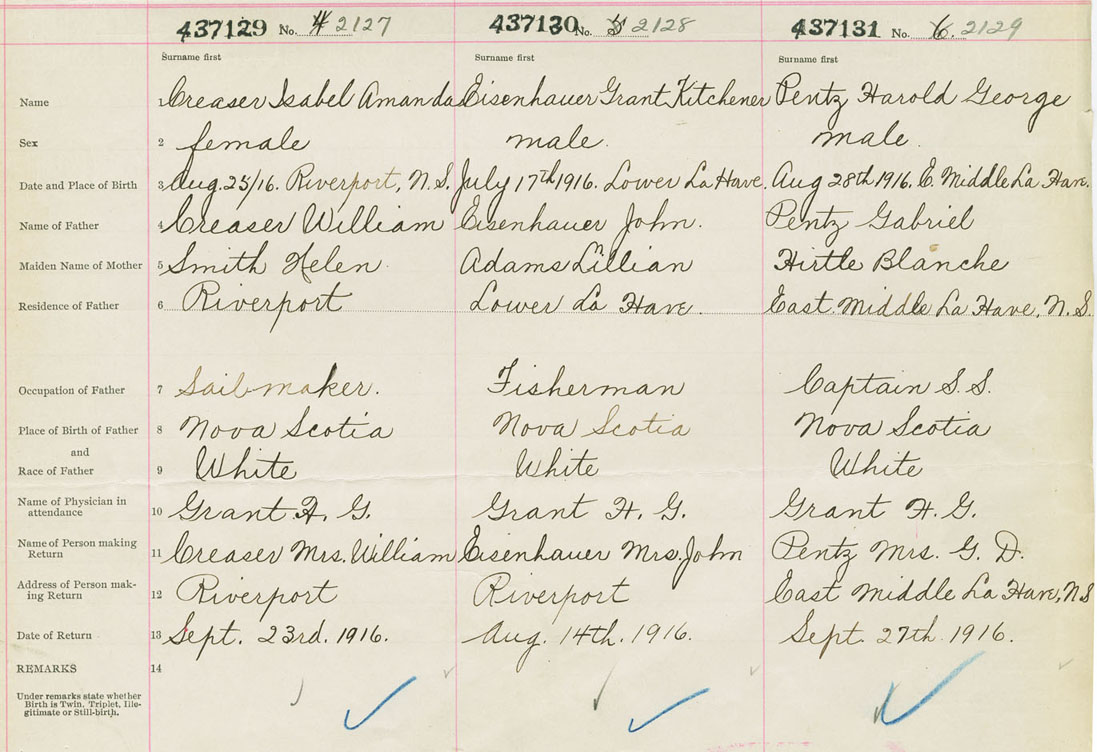 437129 No. 4 2127 437130 No. 5 2128 437131 No. 6. 2129
Surname first Surname first Surname first
Name 1 Creaser Isabel Amanda Eisenhauer Grant Kitchener Pentz Harold George
Sex 2 female male. male.
Date and Place of Birth 3 Aug. 25/16. Riverport, N.S. July 17th 1916. Lower La Have. Aug 28th 1916. E. Middle La Have.
Name of Father 4 Creaser William Eisenhauer John. Pentz Gabriel
Maiden Name of Mother 5 Smith Helen Adams Lillian Hirtle Blanche
Residence of Father 6 Riverport Lower La Have. East Middle La Have, N.S.
Occupation of Father 7 Sailmaker. Fisherman Captain S.S.
Place of Birth of Father 8 Nova Scotia Nova Scotia Nova Scotia
and
Race of Father 9 White White White
Name of Physician in
attendance 10 Grant H. G. Grant H. G. Grant H. G.
Name of Person making
Return 11 Creaser Mrs. William Eisenhauer Mrs. John Pentz Mrs. G. D.
Address of Person mak-
ing Return 12 Riverport Riverport East Middle La Have, N.S
Date of Return 13 Sept. 23rd. 1916. Aug. 14th. 1916. Sept. 27th 1916.
REMARKS 14
Under remarks state whether
Birth is Twin, Triplet, Ille-
gitimate or Still-birth.